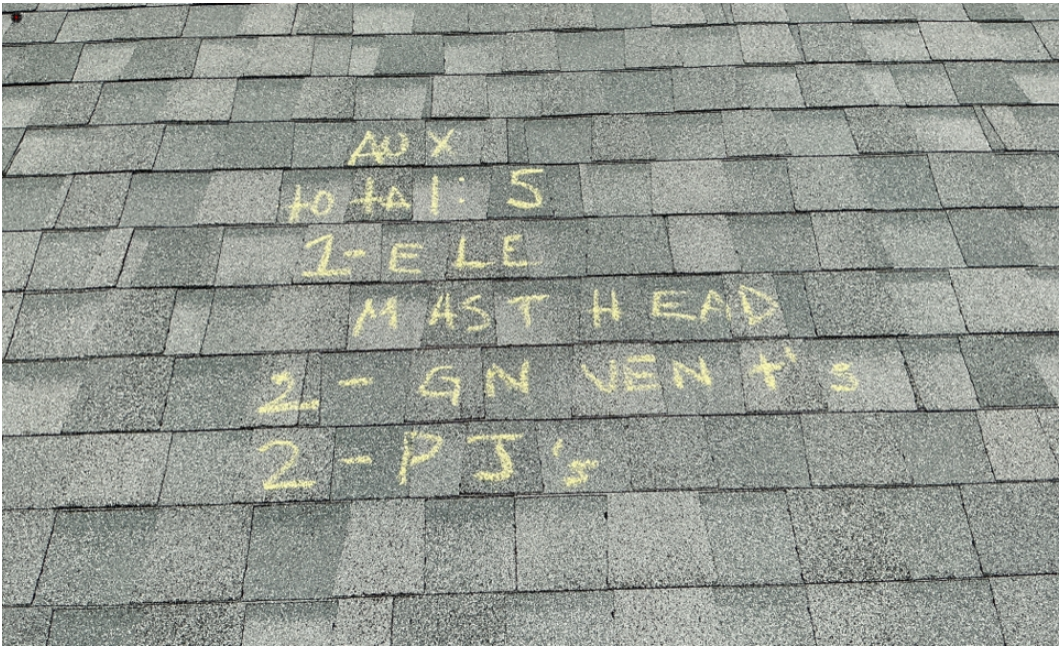 AUX
total: 5
1-ELE
MAST HEAD
2 - GN VENt's
2 - PJ's